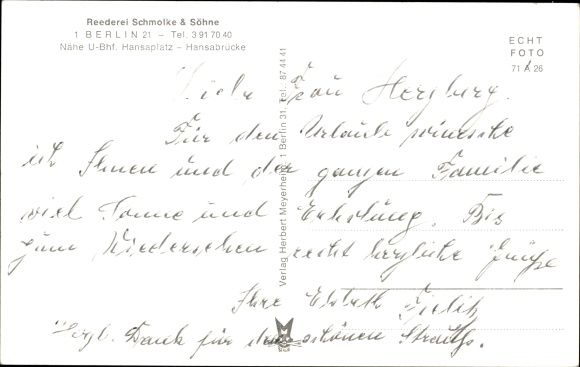 Reederei Schmolke & Söhne
1 BERLIN 21 – Tel. 3 91 70 40
Nähe U-Bhf. Hansaplatz – Hansabrücke
ECHT
FOTO
71 A 26
Verlag Herbert Meyerheim, 1 Berlin 31, Tel. 87 44 41
Frau Herzberg.
Für den Urlaub wünsche
ich Ihnen und der ganzen Familie
viel Sonne und Erholung. Bis
zum Wiedersehen recht herzliche Grüße
Ihre
Herzl. Dank für den schönen Strauß.